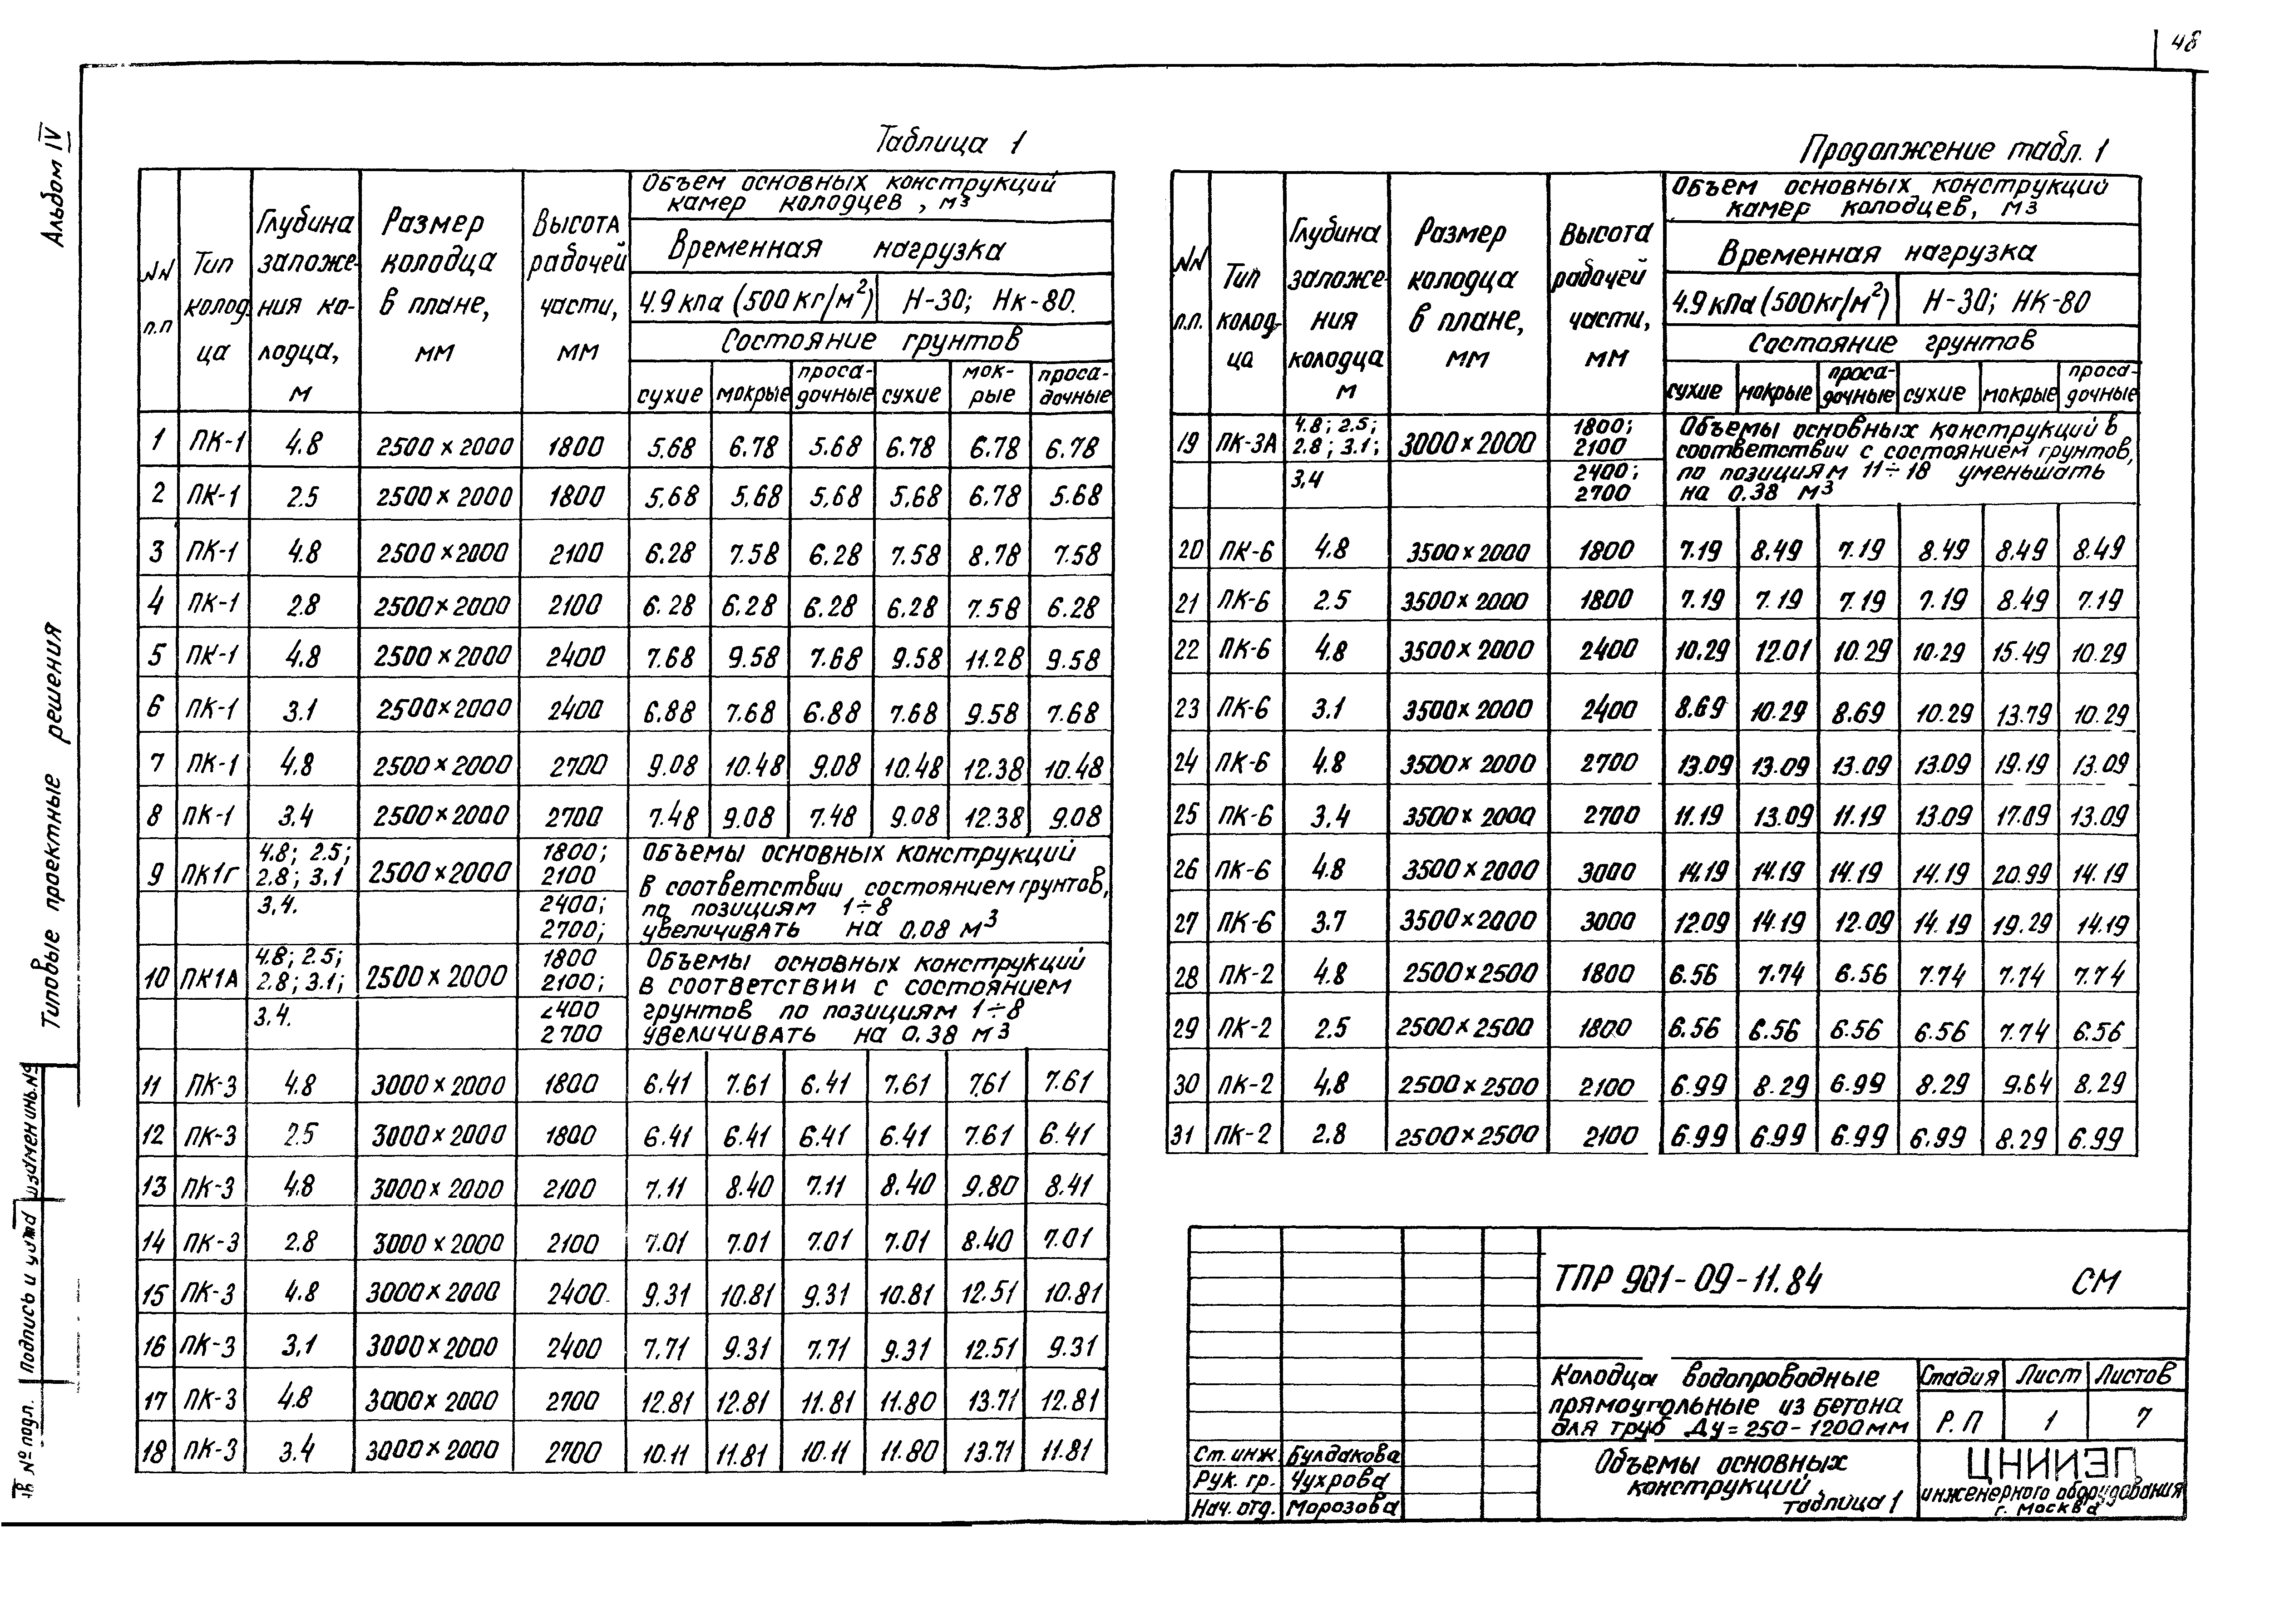 48
Альбом IV
Типовые проектные решения
Таблица 1
NN п.п | Тип колод ца | Глубина заложе- ния ко- лодца, м | Размер колодца в плане, мм | Высота рабочей части, мм | Объем основных конструкций камер колодцев, м3
Временная нагрузка
4.9 кпа (500 кг/м²) | Н-30; Нк-80.
Состояние грунтов
сухие | мокрые | проса- дочные | сухие | мок- рые | проса- дочные
1 | ПК-1 | 4.8 | 2500×2000 | 1800 | 5.68 | 6.78 | 5.68 | 6.78 | 6.78 | 6.78
2 | ПК-1 | 2.5 | 2500×2000 | 1800 | 5.68 | 5.68 | 5.68 | 5.68 | 6.78 | 5.68
3 | ПК-1 | 4.8 | 2500×2000 | 2100 | 6.28 | 7.58 | 6.28 | 7.58 | 8.78 | 7.58
4 | ПК-1 | 2.8 | 2500×2000 | 2100 | 6.28 | 6.28 | 6.28 | 6.28 | 7.58 | 6.28
5 | ПК-1 | 4.8 | 2500×2000 | 2400 | 7.68 | 9.58 | 7.68 | 9.58 | 11.28 | 9.58
6 | ПК-1 | 3.1 | 2500×2000 | 2400 | 6.88 | 7.68 | 6.88 | 7.68 | 9.58 | 7.68
7 | ПК-1 | 4.8 | 2500×2000 | 2700 | 9.08 | 10.48 | 9.08 | 10.48 | 12.38 | 10.48
8 | ПК-1 | 3.4 | 2500×2000 | 2700 | 7.48 | 9.08 | 7.48 | 9.08 | 12.38 | 9.08
9 | ПК1Г | 4.8; 2.5; 2.8; 3.1 3.4. | 2500×2000 | 1800; 2100 2400; 2700; | Объемы основных конструкций
в соответствии состоянием грунтов,
по позициям 1÷8
увеличивать на 0.08 м3
10 | ПК1А | 4.8; 2.5; 2.8; 3.1; 3.4. | 2500×2000 | 1800 2100; 2400 2700 | Объемы основных конструкций
в соответствии с состоянием
грунтов по позициям 1÷8
увеличивать на 0.38 м3
11 | ПК-3 | 4.8 | 3000×2000 | 1800 | 6.41 | 7.61 | 6.41 | 7.61 | 7.61 | 7.61
12 | ПК-3 | 2.5 | 3000×2000 | 1800 | 6.41 | 6.41 | 6.41 | 6.41 | 7.61 | 6.41
13 | ПК-3 | 4.8 | 3000×2000 | 2100 | 7.11 | 8.40 | 7.11 | 8.40 | 9.80 | 8.41
14 | ПК-3 | 2.8 | 3000×2000 | 2100 | 7.01 | 7.01 | 7.01 | 7.01 | 8.40 | 7.01
15 | ПК-3 | 4.8 | 3000×2000 | 2400. | 9.31 | 10.81 | 9.31 | 10.81 | 12.51 | 10.81
16 | ПК-3 | 3.1 | 3000×2000 | 2400 | 7.71 | 9.31 | 7.71 | 9.31 | 12.51 | 9.31
17 | ПК-3 | 4.8 | 3000×2000 | 2700 | 12.81 | 12.81 | 11.81 | 11.80 | 13.71 | 12.81
18 | ПК-3 | 3.4 | 3000×2000 | 2700 | 10.11 | 11.81 | 10.11 | 11.80 | 13.71 | 11.81
Продолжение табл. 1
NN п.п. | Тип колод- ца | Глубина заложе- ния колодца м | Размер колодца в плане, мм | Высота рабочей части, мм | Объем основных конструкций камер колодцев, м3
Временная нагрузка
4.9 кПа (500кг/м²) | Н-30; НК-80
Состояние грунтов
сухие | мокрые | проса- дочные | сухие | мокрые | проса- дочные
19 | ПК-3А | 4.8; 2.5; 2.8; 3.1; 3.4 | 3000×2000 | 1800; 2100 2400; 2700 | Объемы основных конструкций в
соответствии с состоянием грунтов,
по позициям 11÷18 уменьшать
на 0.38 м3
20 | ПК-6 | 4.8 | 3500×2000 | 1800 | 7.19 | 8.49 | 7.19 | 8.49 | 8.49 | 8.49
21 | ПК-6 | 2.5 | 3500×2000 | 1800 | 7.19 | 7.19 | 7.19 | 7.19 | 8.49 | 7.19
22 | ПК-6 | 4.8 | 3500×2000 | 2400 | 10.29 | 12.01 | 10.29 | 10.29 | 15.49 | 10.29
23 | ПК-6 | 3.1 | 3500×2000 | 2400 | 8.69 | 10.29 | 8.69 | 10.29 | 13.79 | 10.29
24 | ПК-6 | 4.8 | 3500×2000 | 2700 | 13.09 | 13.09 | 13.09 | 13.09 | 19.19 | 13.09
25 | ПК-6 | 3.4 | 3500×2000 | 2700 | 11.19 | 13.09 | 11.19 | 13.09 | 17.09 | 13.09
26 | ПК-6 | 4.8 | 3500×2000 | 3000 | 14.19 | 14.19 | 14.19 | 14.19 | 20.99 | 14.19
27 | ПК-6 | 3.7 | 3500×2000 | 3000 | 12.09 | 14.19 | 12.09 | 14.19 | 19.29 | 14.19
28 | ПК-2 | 4.8 | 2500×2500 | 1800 | 6.56 | 7.74 | 6.56 | 7.74 | 7.74 | 7.74
29 | ПК-2 | 2.5 | 2500×2500 | 1800 | 6.56 | 6.56 | 6.56 | 6.56 | 7.74 | 6.56
30 | ПК-2 | 4.8 | 2500×2500 | 2100 | 6.99 | 8.29 | 6.99 | 8.29 | 9.64 | 8.29
31 | ПК-2 | 2.8 | 2500×2500 | 2100 | 6.99 | 6.99 | 6.99 | 6.99 | 8.29 | 6.99
ТПР 901-09-11.84 СМ
Колодцы водопроводные
прямоугольные из бетона
для труб Ду=250-1200мм
Стадия | Лист | Листов
Р.П | 1 | 7
Ст. инж. Булдакова
Рук. гр. Чухрова
Нач. отд. Морозова
Объемы основных
конструкций,
таблица 1
ЦНИИЭП
инженерного оборудования
г. Москва
№ подл.
Подпись и